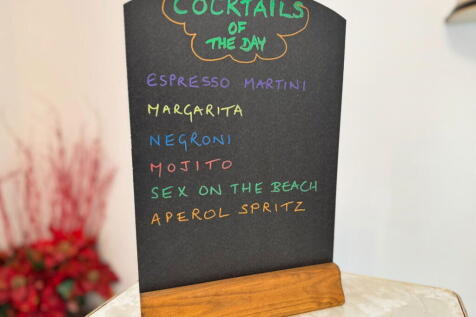 COCKTAILS
OF
THE DAY
ESPRESSO MARTINI
MARGARITA
NEGRONI
MOJITO
SEX ON THE BEACH
APEROL SPRITZ